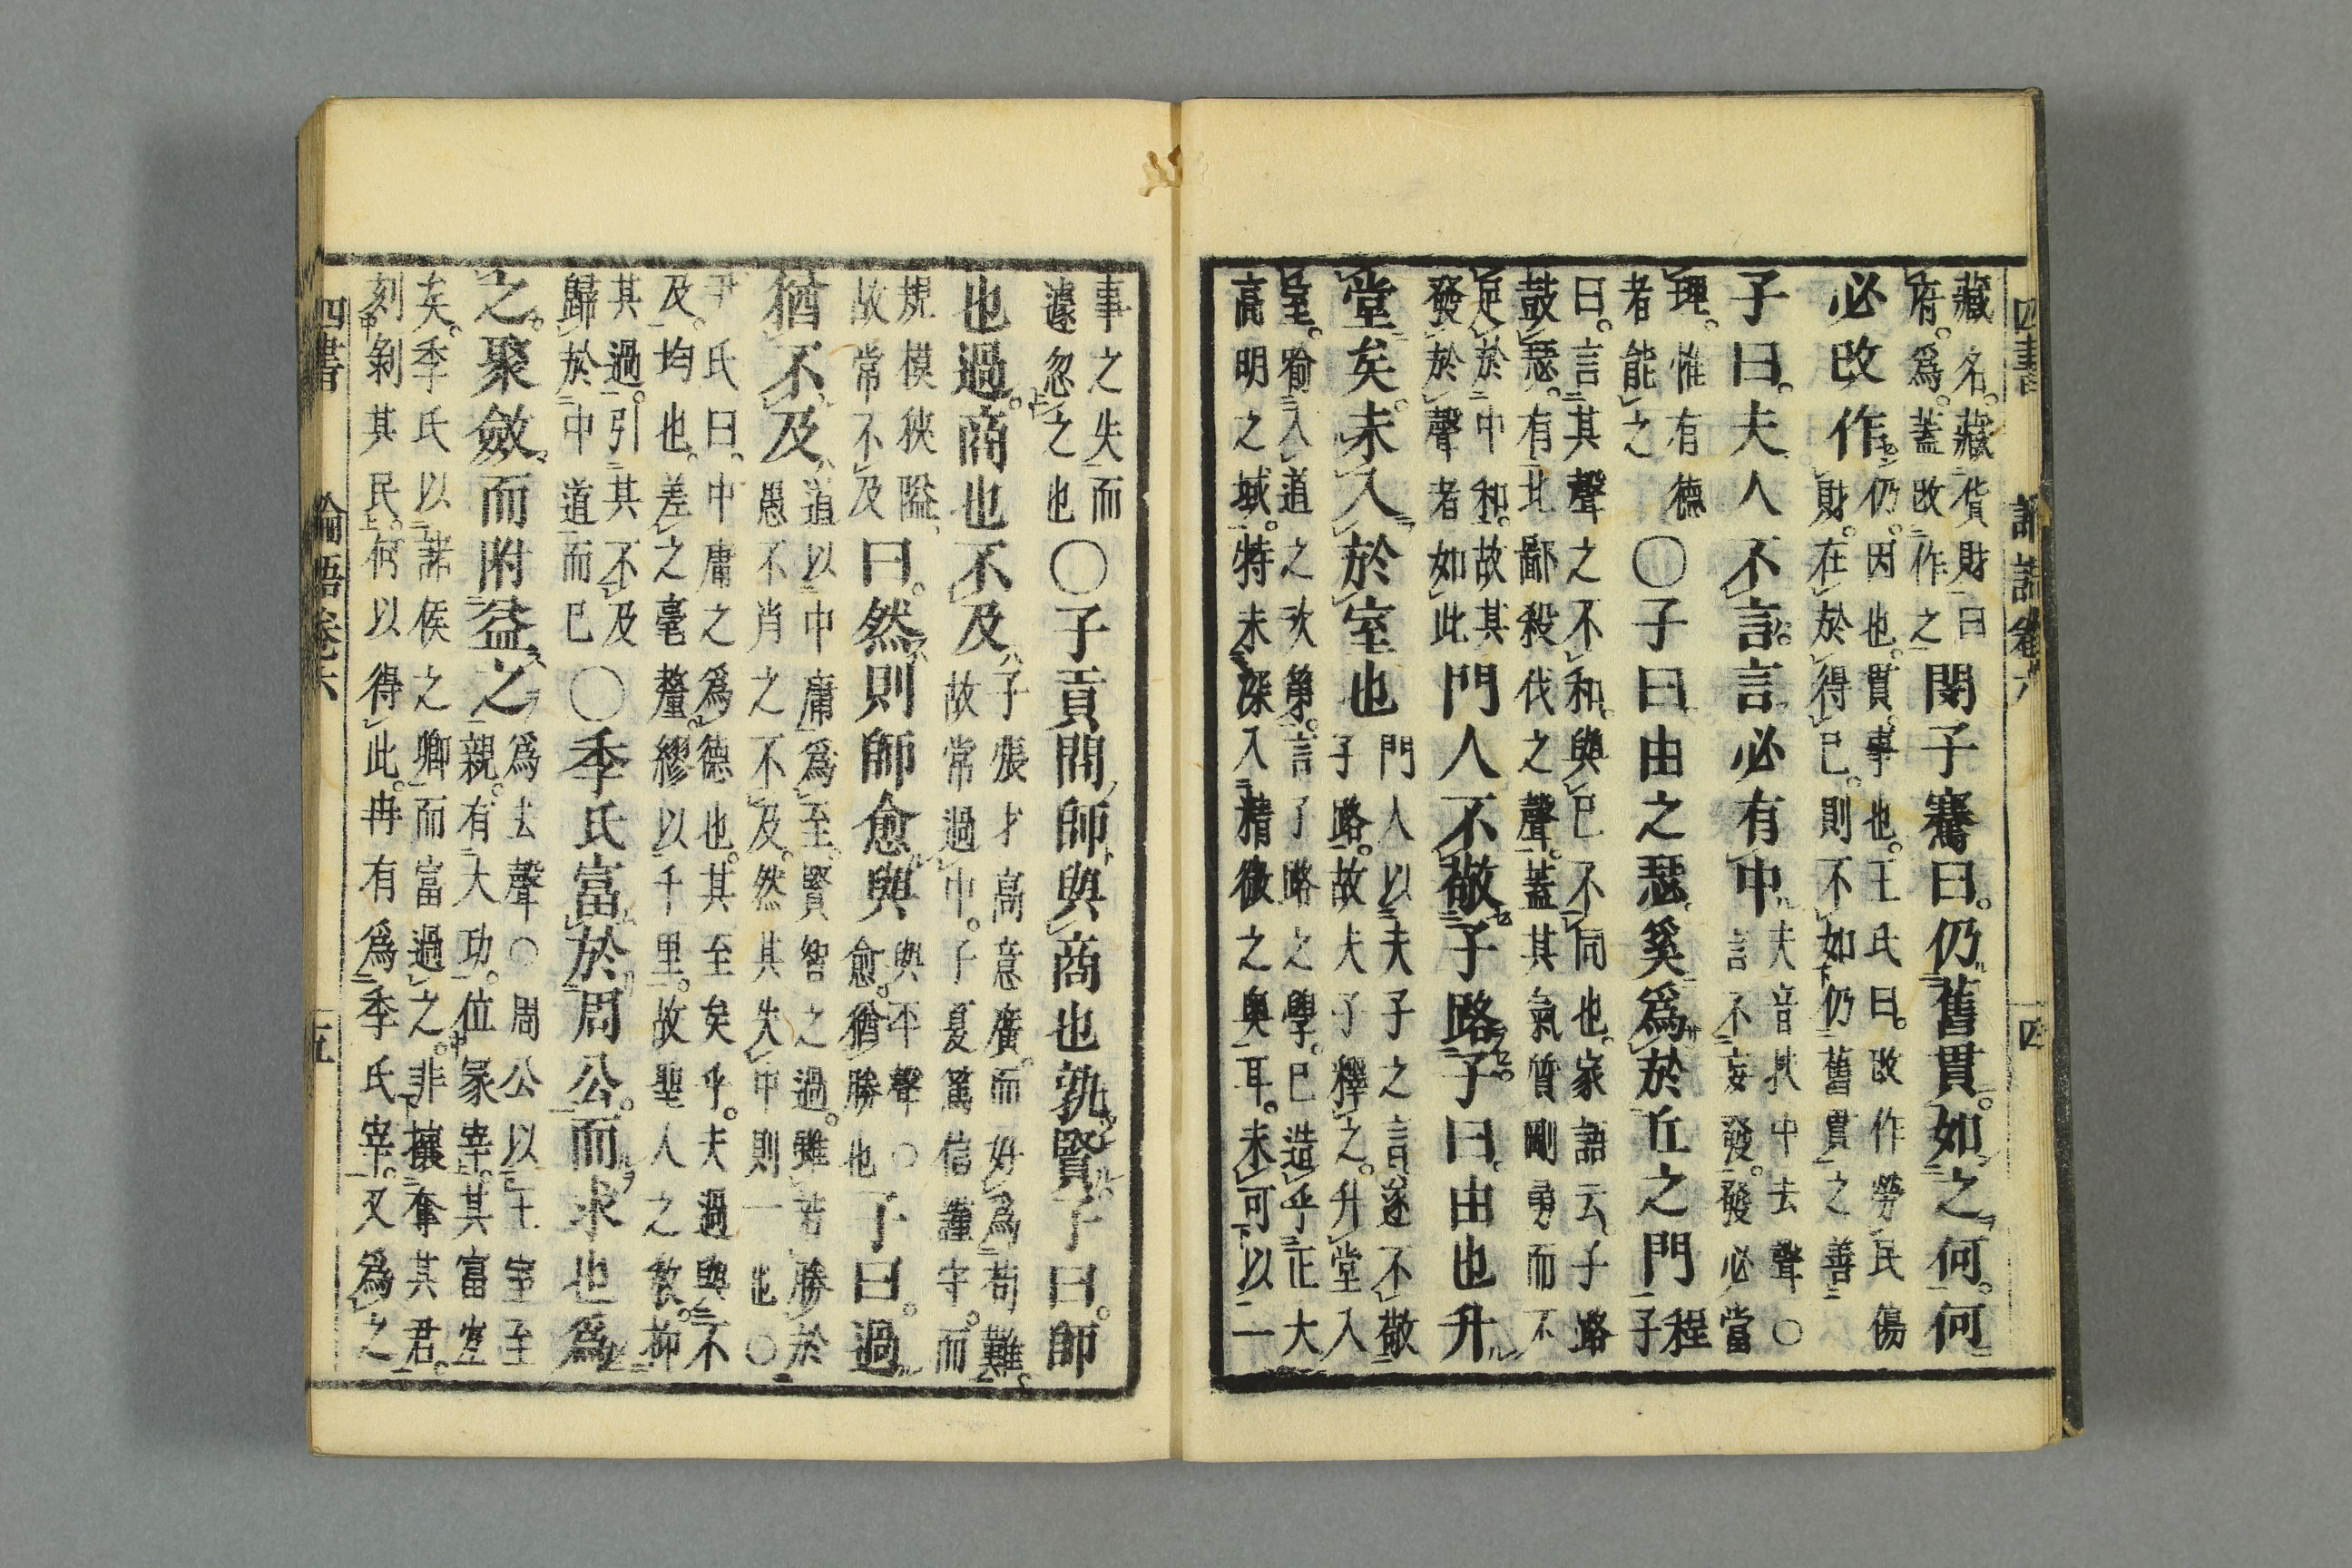 四書 論語卷六 十四
藏名。藏貨財曰
府。為。蓋改作之
閔子騫曰。仍舊貫。如之何。何
必改作
仍。因也。貫。事也。王氏曰。改作勞民傷
財。在於得已。則不如仍舊貫之善
子曰。夫人不言。言必有中
夫音扶中去聲○
言不妄發。發必當
理。惟有德
者能之
○子曰由之瑟奚爲於丘之門
程
子
曰。言其聲之不和。與已不同也。家語云。子路
鼓瑟。有北鄙殺伐之聲。蓋其氣質剛勇而不
足於中和。故其
發於聲者如此
門人不敬子路。子曰。由也升
堂矣。未入於室也
門人以夫子之言。遂不敬
子路。故夫子釋之。升堂入
室。喻入道之次第。言子路之學。已造乎正大
高明之域。特未深入精微之奧耳。未可以一
事之失而
遽忽之也
○子貢問師與商也孰賢。子曰。師
也過。商也不及
子張才高意廣。而好爲苟難。
故常過中。子夏篤信謹守。而
規模狹隘。
故常不及
曰。然則師愈與
與平聲○
愈。猶勝也
子曰。過
猶不及
道以中庸爲至。賢智之過。雖若勝於
愚不肖之不及。然其失中則一也○
尹氏曰。中庸之爲德也。其至矣乎。夫過與不
及。均也。差之毫釐。繆以千里。故聖人之教。抑
其過。引其不及
歸於中道而已
○季氏富於周公。而求也爲
之。聚斂。而附益之
爲去聲○周公以王室至
親。有大功。位冢宰。其富宜
矣。季氏以諸侯之卿。而富過之。非攘奪其君。
刻剝其民。何以得此。冉有爲季氏宰。又爲之
四書 論語卷六 十五